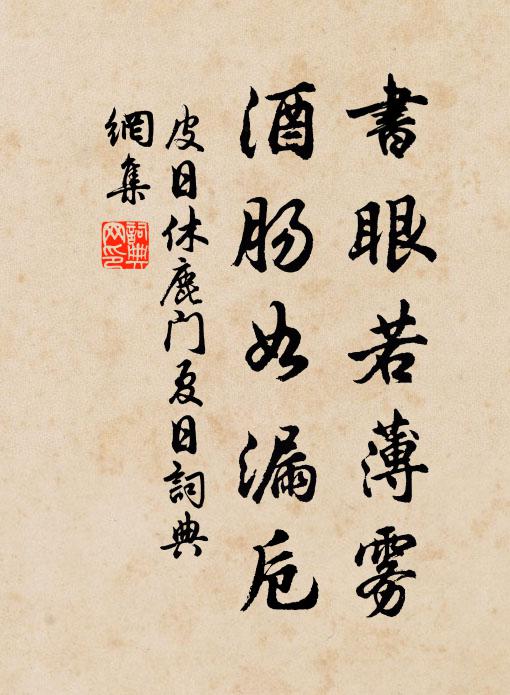 書眼若薄雾
酒肠如漏卮
皮日休鹿门夏日詞典
網集
詞典
网印